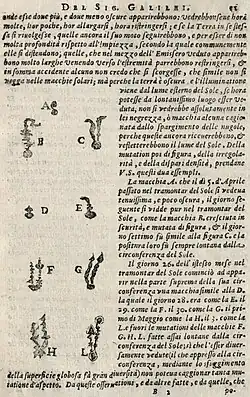 DEL SIG. GALILEI. 51
onde esse doue più, e doue meno oscure apparirebbono, vedrebbonsene hor
molte, hor poche, hor allargarsi, hora restringersi; e se la Terra in se stes
sa si riuolgesse, quelle ancora il suo moto seguirebbono, e per esser di non
molta profondità rispetto all'ampiezza, secondo la quale comunemente
elle si distendono, quelle, che nel mezzo dell'Emisfero veduto apparireb
bono molto larghe venendo verso l'estremità parrebbono restringersi, &
in somma accidente alcuno non credo che si scorgesse, che simile non si
vegga nelle macchie solari; mà perche la terra è oscura, e l'illuminatione
viene dal lume esterno del Sole, se hora
potesse da lontanissimo luogo esser ve-
duta, non si vedrebbe assolutamente in
lei negrezza, ò macchia alcuna cagio-
nata dallo spargimento delle nugole,
perche queste ancora riceuerebbono, &
refletterebbono il lume del Sole. Della
mutation poi di figura, della irregola-
rità, e della dispari densità, prendane
V. S. questi due essempli.
La macchia A. che il dì 5. d'Aprile
passato nel tramontar del Sole si vedeua
tenuissima, e poco oscura, il giorno se-
guente si vide pur nel tramontar del
Sole, come la macchia B. cresciuta in
scurità, e mutata di figura, & il giorno
settimo fù simile alla figura C. e la
positura loro fù sempre lontana dalla
circonferenza del Sole.
Il giorno 26. dell'istesso mese nel
tramontar del Sole cominciò ad appa-
rir nella parte suprema della sua circon-
ferenza vna macchia simile alla D.
la quale il giorno 28. era come la E. il
29. come la F. il 30. come la G. il pri-
mo di Maggio come la H. il 3. come la
L. e furo le mutationi delle macchie F.
G. H. L. fatte assai lontane dalla cir-
conferenza del Sole, sì che l'esser diuer-
samente vedute (il che appresso alla cir-
conferenza, mediante lo sfuggimento
della superficie globosa fà gran diuersità) non poteua cagionar tanta mu-
tatione d'aspetto. Da queste osseru
ationi, e da altre fatte, e da quelle, che
B 2 po-
A
B
C
D
E
F
G
H
L